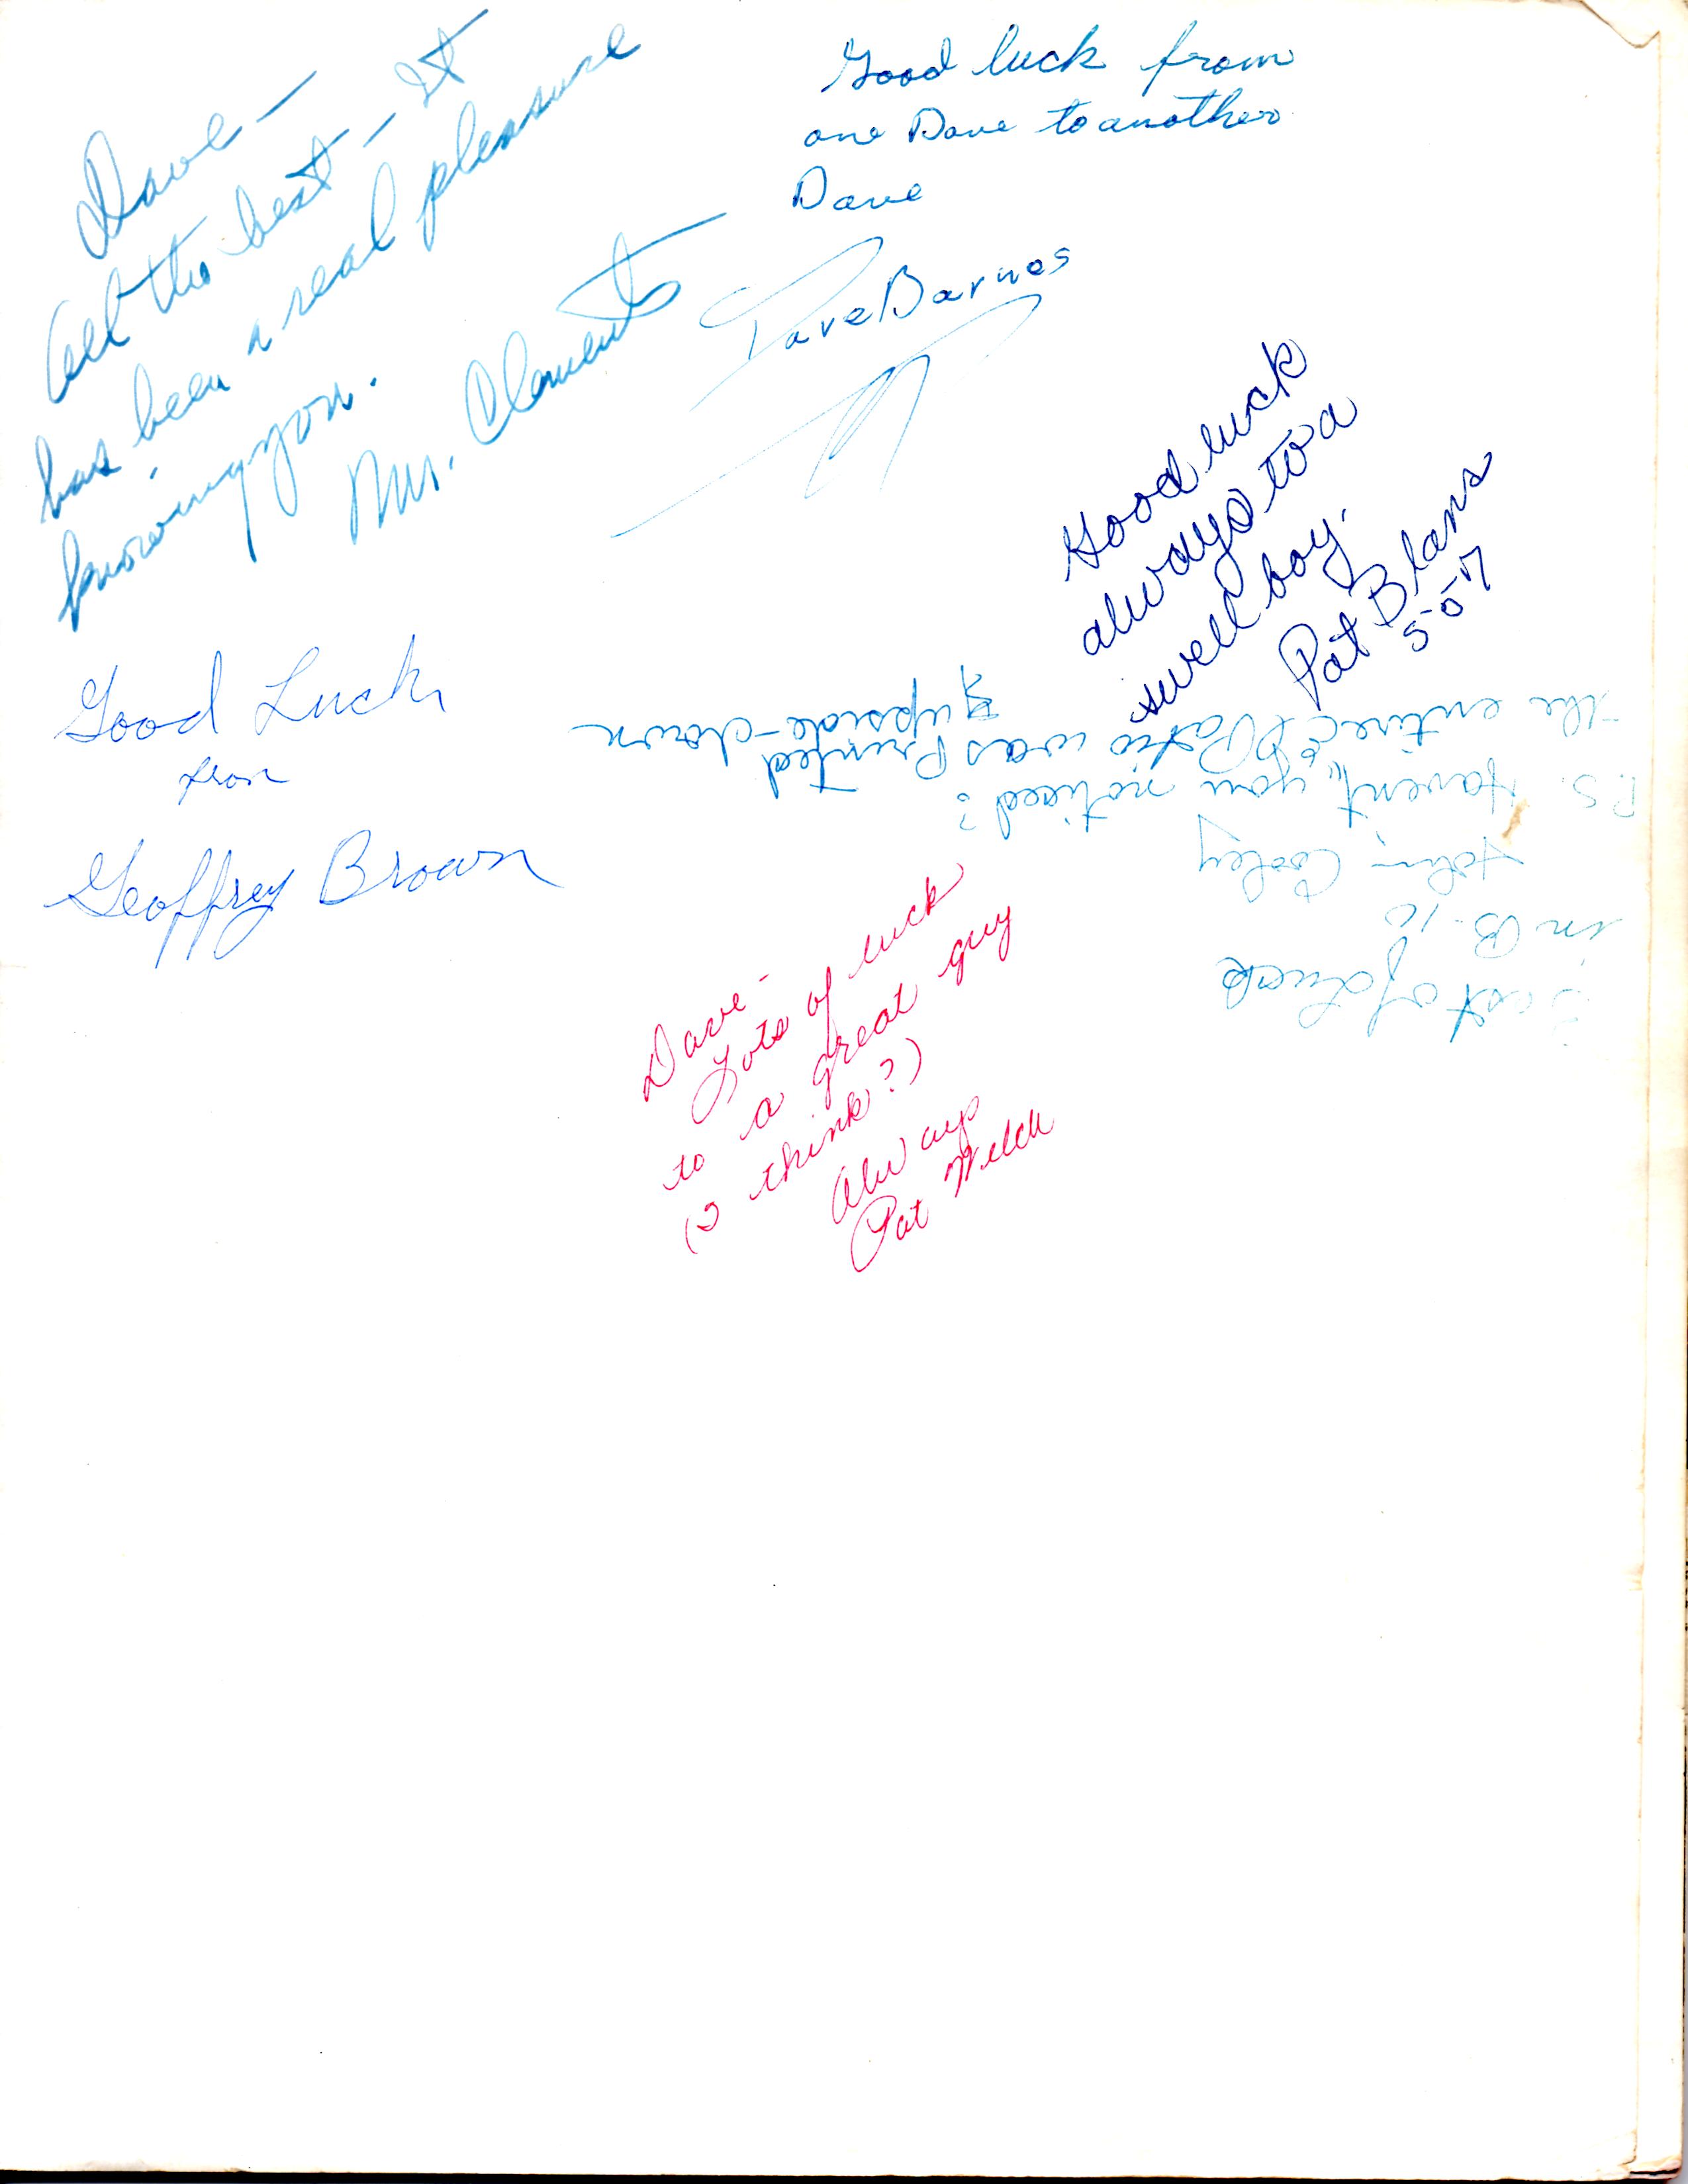 Dave —
All the best — It
has been a real pleasure
knowing you.
Mr. Clements
Good luck from
one Dave to another
Dave
Dave Barnes
Good luck
always to a
swell boy.
Pat Blans
5-07
Good Luck
from
Geoffrey Brown
Best of Luck
in B-10
John Cooley
P.S. Haven't you noticed?
the entire Patio was printed
upside-down
Dave —
Lots of luck
to a great guy
(I think?)
Always
Pat Welch